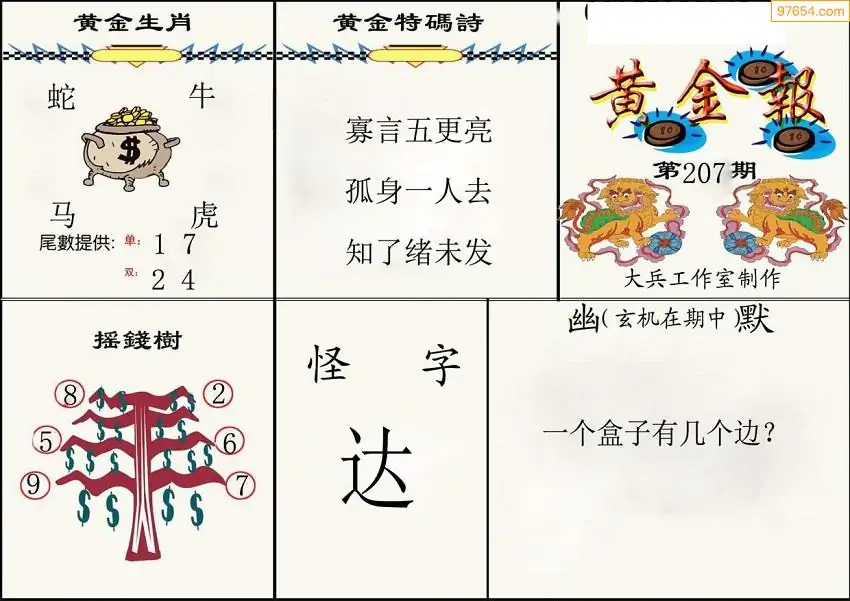 97654.com
黄金生肖
蛇 牛
$
马 虎
尾數提供: 单: 1 7
双: 2 4
黄金特碼詩
寡言五更亮
孤身一人去
知了绪未发
黄金報
10
10
10
第207期
大兵工作室制作
摇錢樹
8 2
5 6
9 7
怪 字
达
幽(玄机在期中)默
一个盒子有几个边?